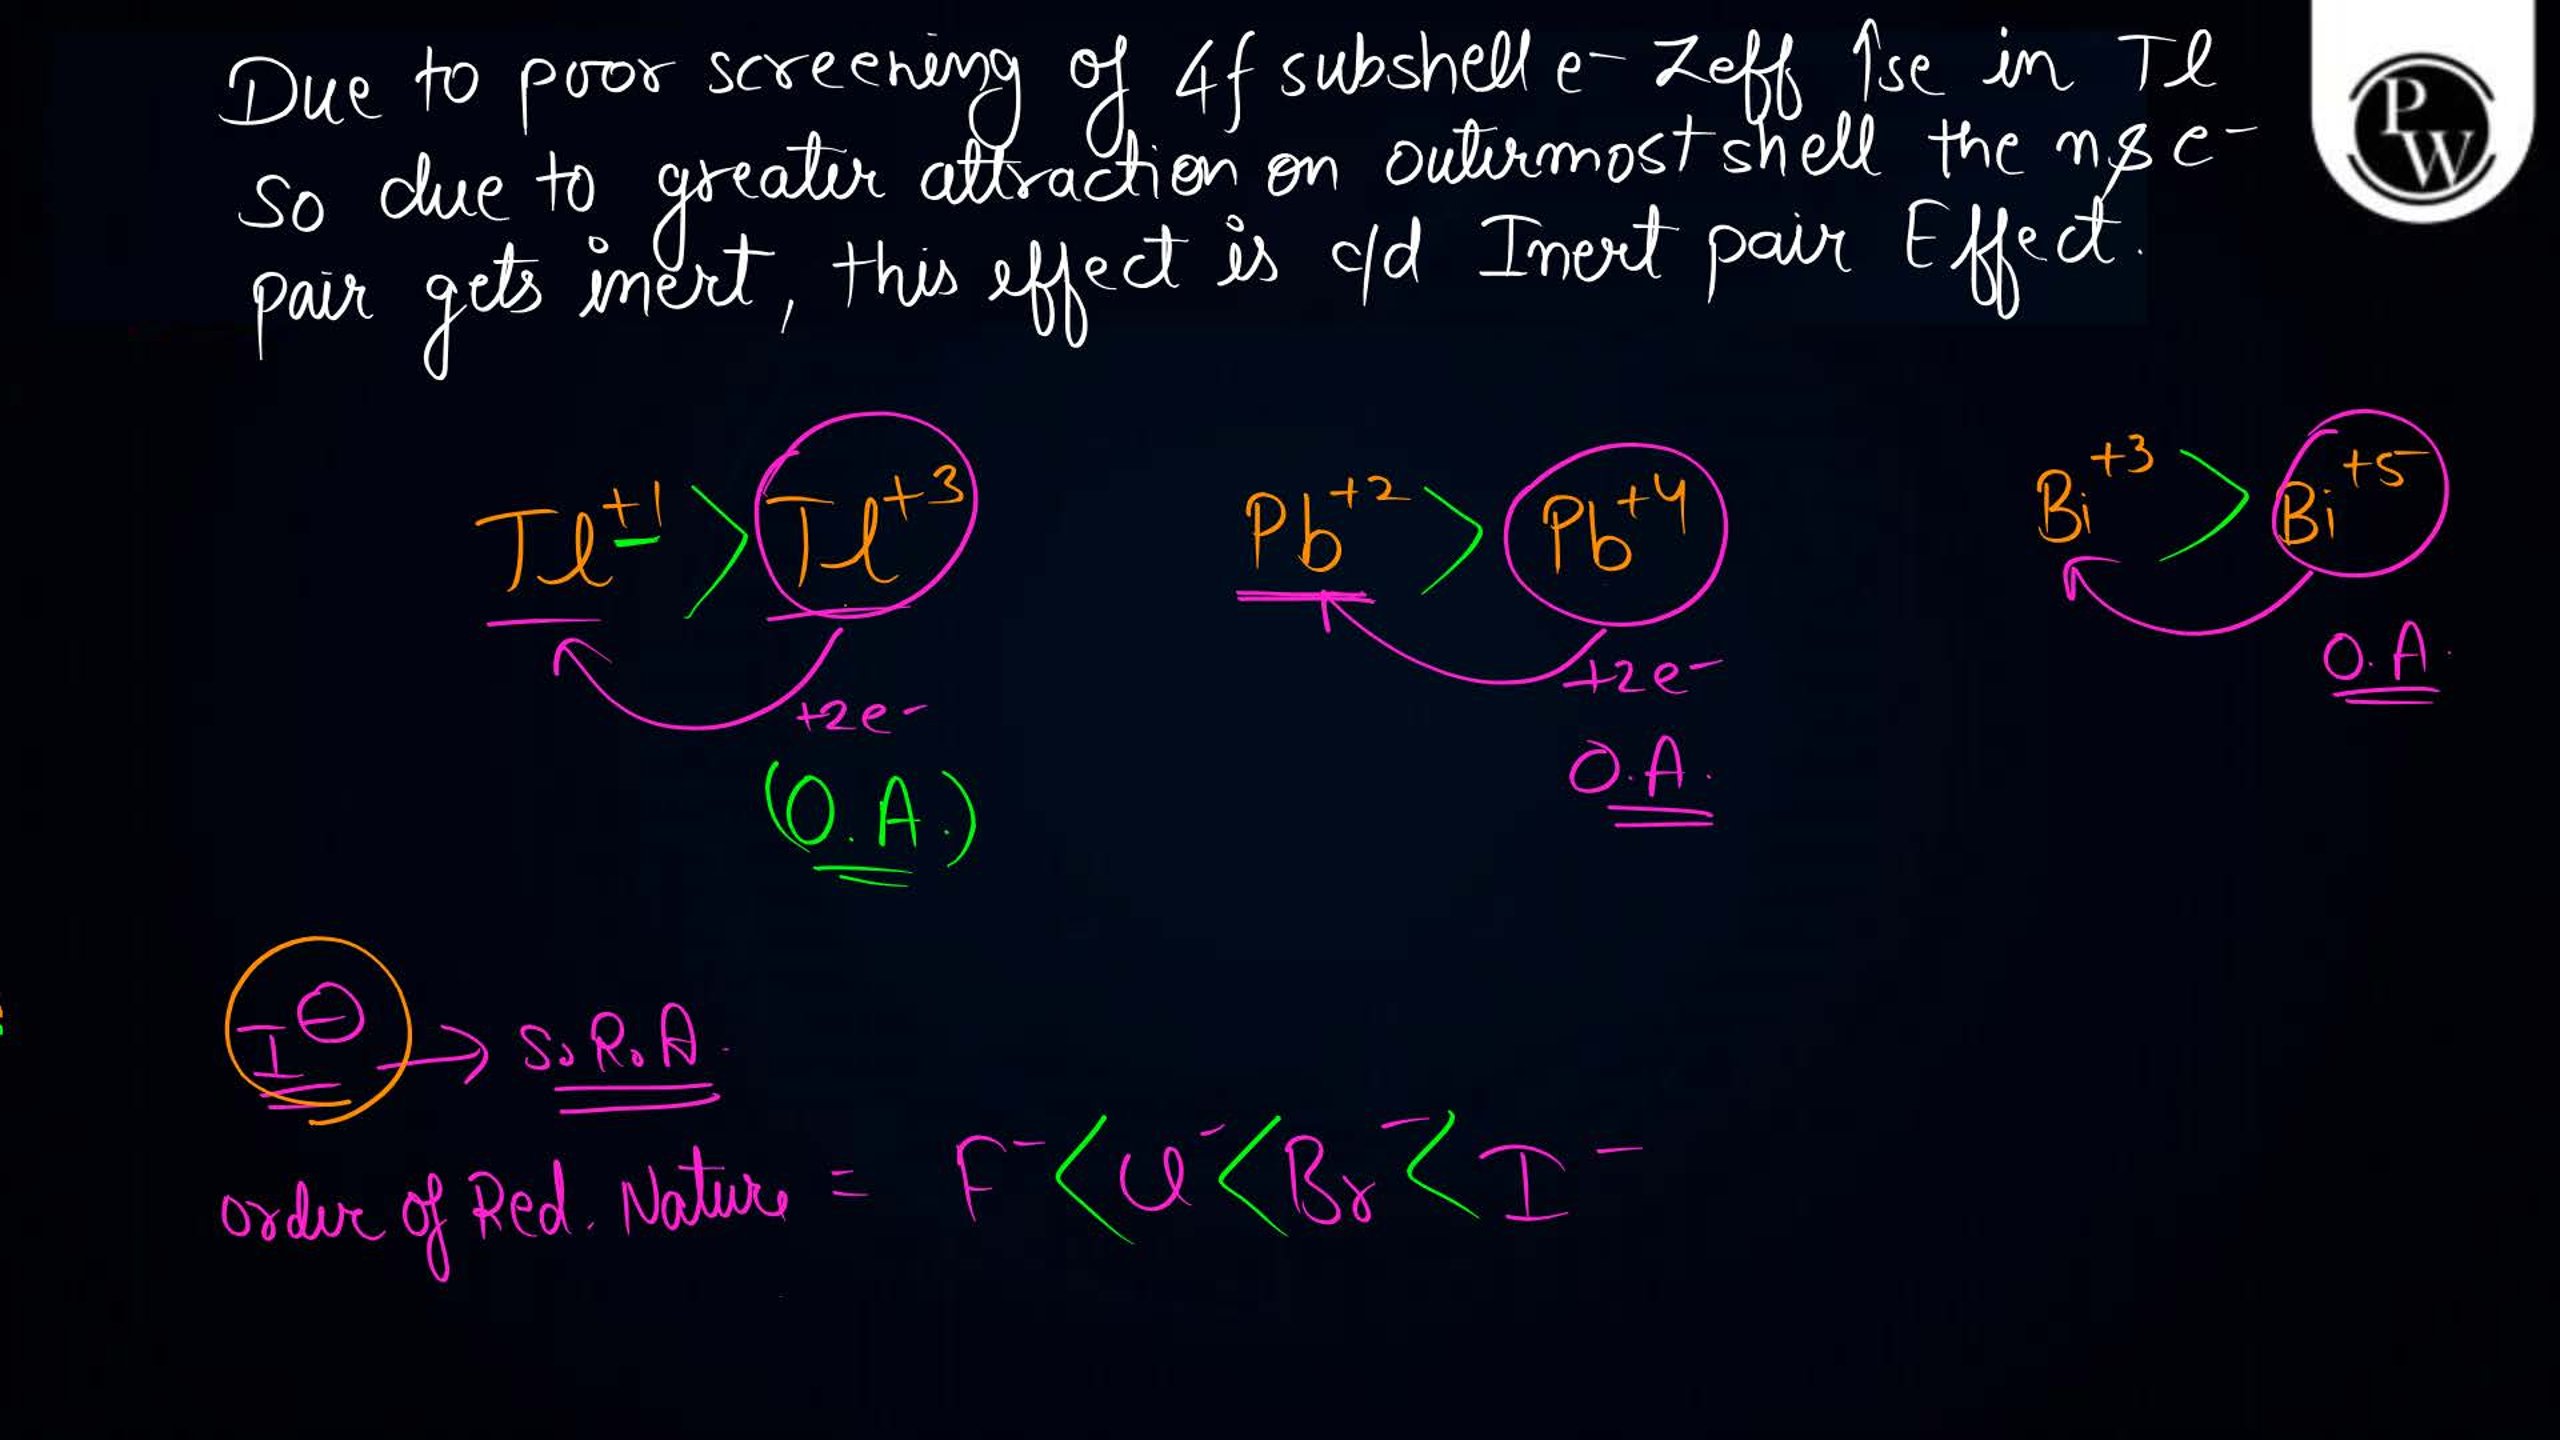 Due to poor screening of 4f subshell e- Zeff ↑se in Tl
so due to greater attraction on outermost shell the ns e-
pair gets inert, this effect is c/d Inert pair Effect.
PW
Tl+1 > Tl+3
Pb+2 > Pb+4
Bi+3 > Bi+5
+2e-
(O.A.)
+2e-
O.A.
O.A.
I⊖ → S.R.A.
order of Red. Nature = F- < Cl- < Br- < I-